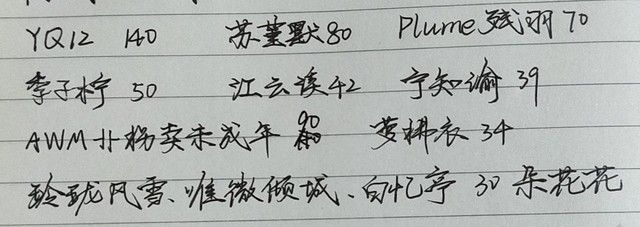 YQ12 140 苏堇默80 Plume残羽70
李子柠 50 江云溪42 宁知渝 39
AWM卄拐卖未成年 90 萝拂衣 34
玲珑风雪、唯微倾城、白忆亭 30 朵花花